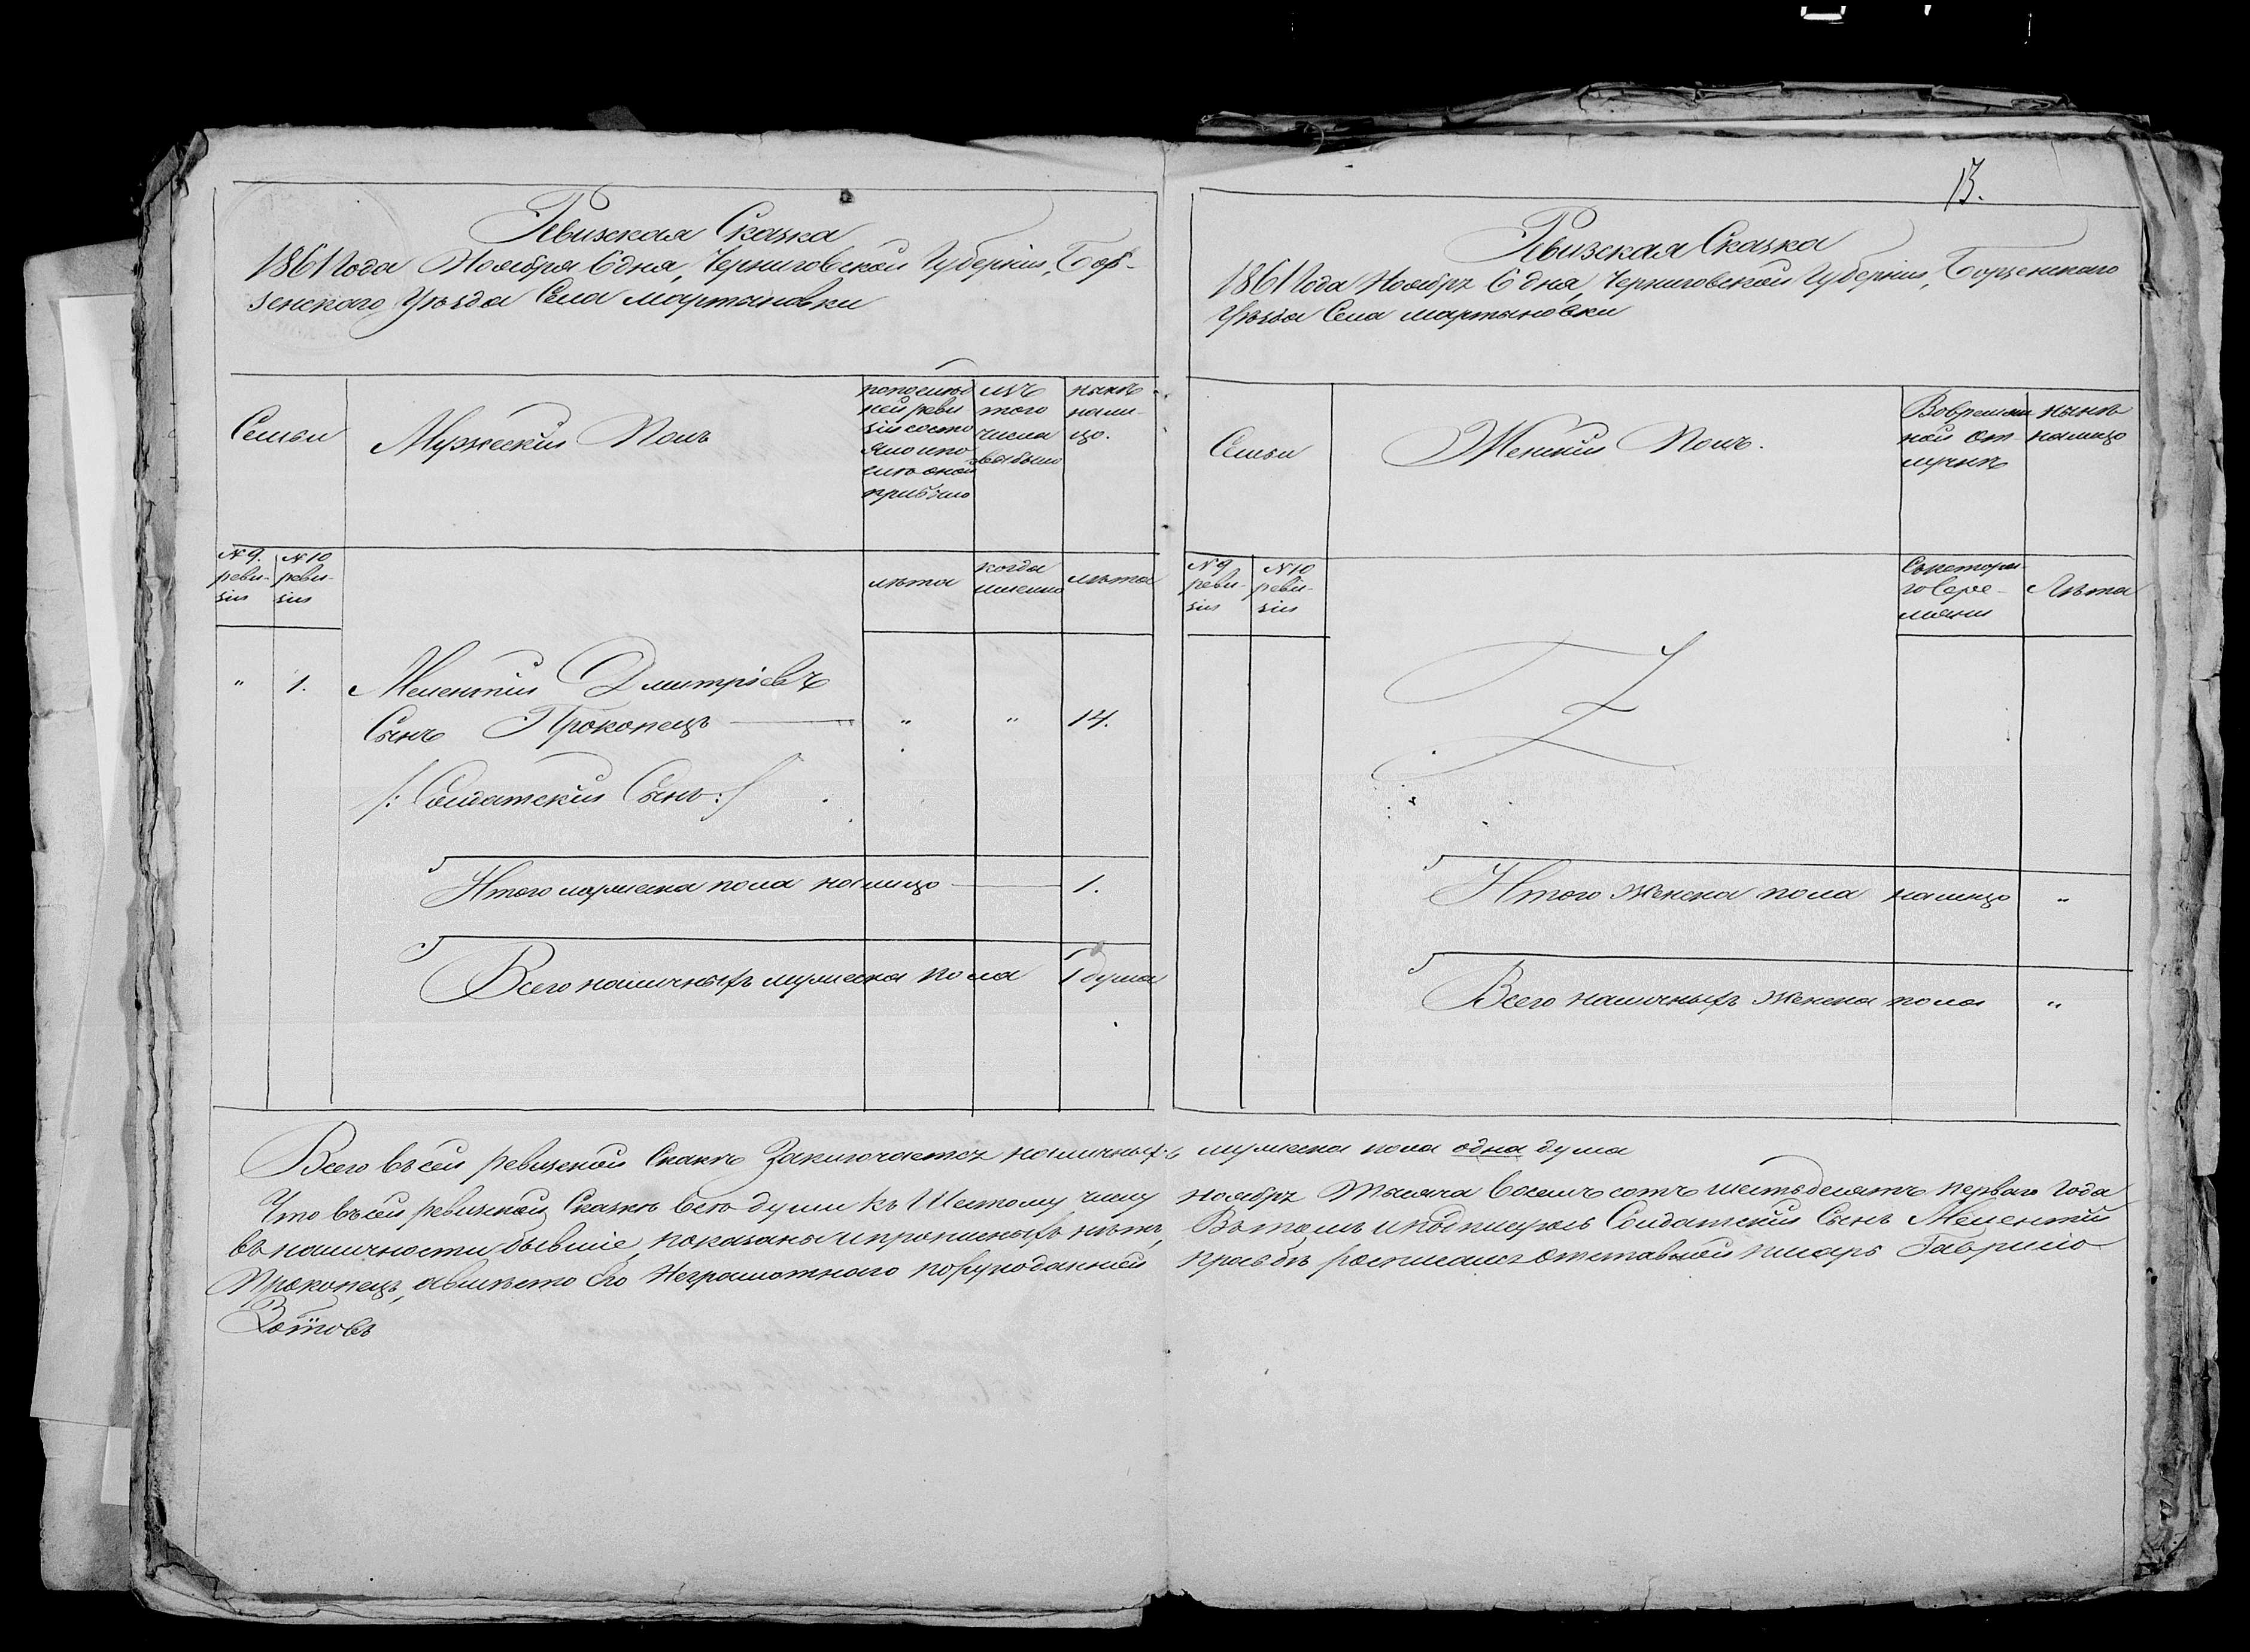 Ревизская Сказка
1861 года Ноября 6 дня, Черниговской Губерніи, Бор-
зенского Уѣзда Села Мартыновки
Семьи
Мужескій Полъ
по послѣд
ней реви
зіи состо
яло и по
слѣ оной
прибыло
изъ
того
числа
выбыло
нынѣ
нали-
цо.
№ 9.
реви-
зіи
№ 10
реви-
зіи
лѣта
когда
именно
лѣта
" 1. Мелентій Дмитріевъ
Сынъ Прокопецъ " " 14.
/: Солдатскій Сынъ :/
Итого мужеска пола налицо 1.
Всего наличныхъ мужеска пола 1 душа
13.
Ревизская Сказка
1861 Года Ноября 6 дня, Черниговской Губерніи, Борзенскаго
Уѣзда Села Мартыновки
Семьи
Женскій Полъ.
Во времен
ной от
лучкѣ
нынѣ
налицо
№ 9
реви-
зіи
№ 10
реви-
зіи
Съ котора-
го вре-
мени
Лѣта
Итого женска пола налицо "
Всего наличныхъ женска пола "
Всего въ сей ревизской Сказкѣ Заключается наличныхъ мужеска пола одна душа
Что въ сей ревизской Сказкѣ всѣ души къ Шестому числу ноября Тысяча восемъ сотъ шестьдесятъ перваго Года
въ наличности бывшіе, показаны и прописныхъ нѣтъ, Въ томъ и подписуюсь Солдатскій Сынъ Мелентій
Прокопецъ, а вмѣсто его неграмотнаго по рукоданной прозьбѣ росписался отставной писарь Гаврило
Зотовъ